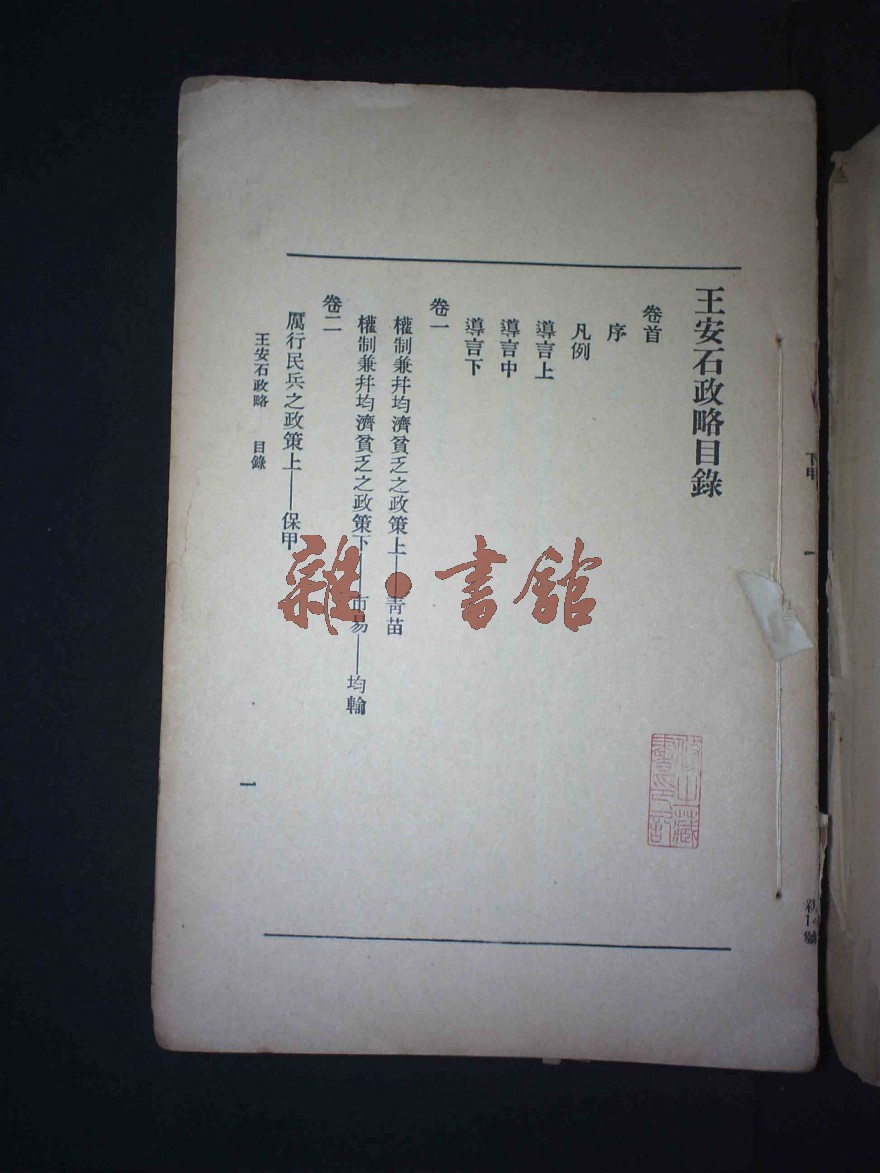 王安石政略目錄
卷首
序
凡例
導言上
導言中
導言下
卷一
權制兼幷均濟貧乏之政策上——青苗
權制兼幷均濟貧乏之政策下——市易——均輸
卷二
厲行民兵之政策上——保甲
王安石政略　目錄
一
雜·書館